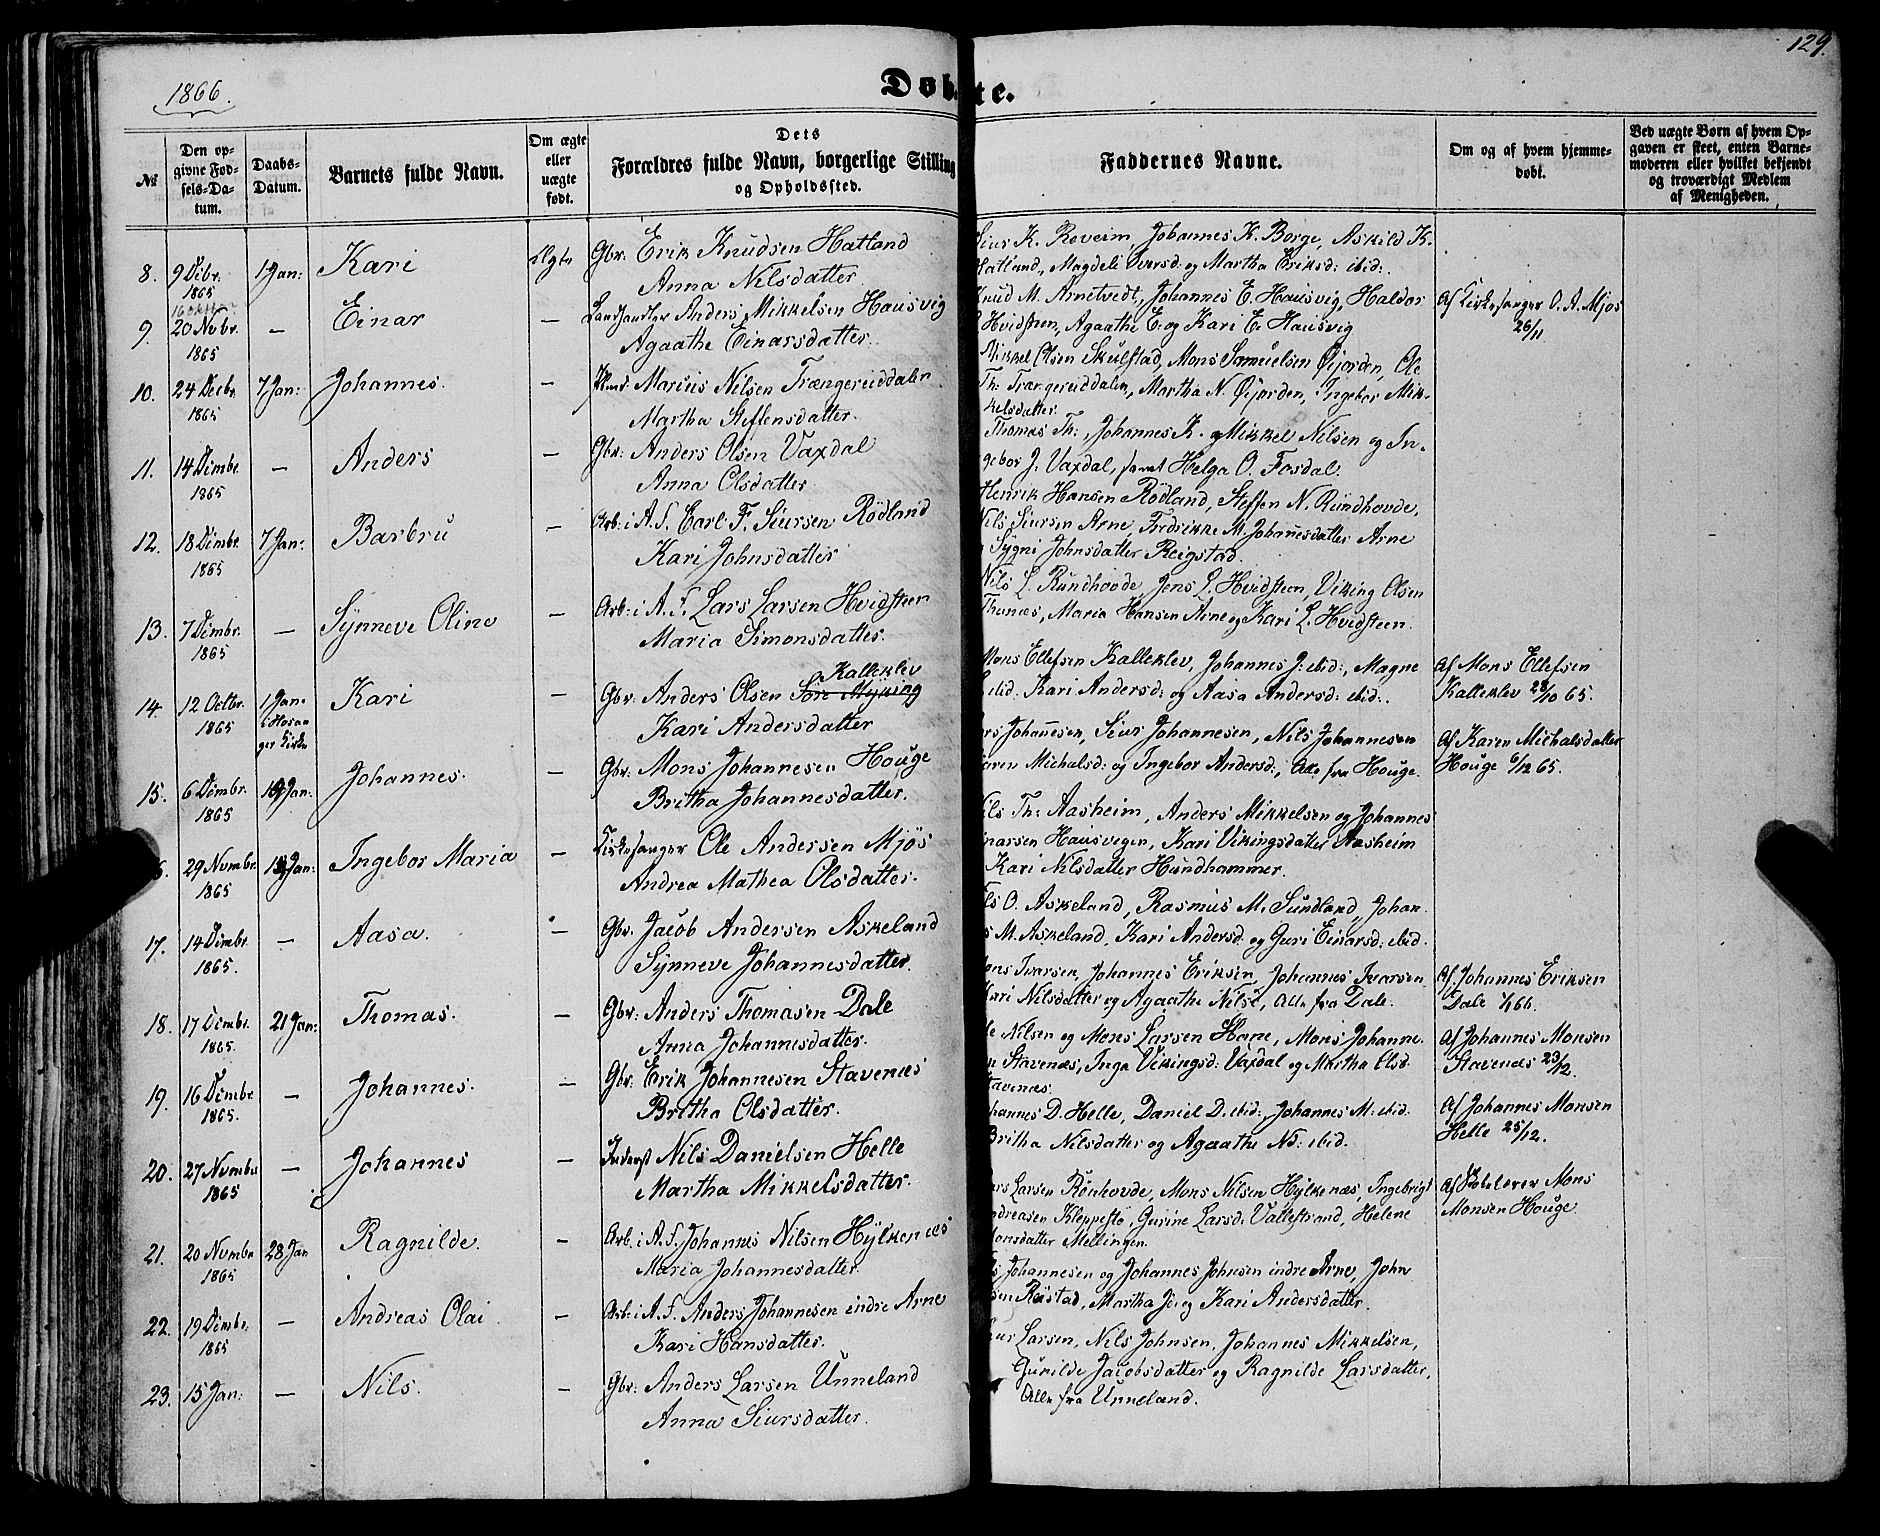 1866.
Døbte.
129.
№
Den opgivne Fødsels-Datum.
Daabs-Datum.
Barnets fulde Navn.
Om ægte eller uægte født.
Dets Forældres fulde Navn, borgerlige Stilling og Opholdssted.
Faddernes Navne.
Om og af hvem hjemmedøbt.
Ved uægte Børn af hvem Opgaven er skeet, enten Barnemoderen eller hvilket bekjendt og troværdigt Medlem af Menigheden.
8. 9 Debr. 1865 1 Jan: Kari Ægte Gbr: Erik Knudsen Hatland
Anna Nilsdatter
Siur K. Roveim, Johannes K. Borge, Askild K.
Hatland, Magdeli Iversd: og Martha Eriksd: ibid:.
9. 20 Nvbr. 1865 — Einar — Landhandler Anders Mikkelsen Hausvig
Agaathe Einarsdatter.
Knud M. Arnetvedt, Johannes E. Hausvig, Haldor
Hvidsteen, Agaathe E. og Kari E. Hausvig
Af Kirkesanger O. A. Mjøs
26/11
10. 24 Decbr. 1865 7 Jan: Johannes. — Marcus Nilsen Trængeruddalen
Martha Steffensdatter.
Mikkel Olsen Skulstad, Mons Samuelsen Øijorden, Ole
Th: Trængeruddalen, Martha N. Øijorden, Ingebor Mikkelsdatter
11. 14 Dcmbr 1865 — Anders — Gbr: Anders Olsen Vaxdal
Anna Olsdatter
Thomas Th:, Johannes K. og Mikkel Nilsen og Ingebor J. Vaxdal, samt Helga O. Fosdal.
12. 18 Dcmbr. 1865 7 Jan: Barbru — Arb: i A. S. Carl F. Siursen Rödland
Kari Johnsdatter
Henrik Hansen Rödland, Steffen N. Rundhovde,
Nils Siursen Arne, Fredrikke M. Johannesdatter Arne
Sygni Johnsdatter Reigstad.
13. 7 Dcmbr. 1865 — Synneve Oline — Arb: i A. S. Lars Larsen Hvidsteen
Maria Simonsdatter.
Nils L. Rundhovde, Jens L. Hvidsteen, Viking Olsen
Thunæs, Maria Hansen Arne og Kari L. Hvidsteen.
14. 12 Octbr. 1865 1 Jan. i Hosanger Kirke Kari — Gbr. Anders Olsen Söre Myking Kalleklev
Kari Andersdatter
Mons Ellefsen Kalleklev, Johannes J. ibid:, Magne
ibid. Kari Andersd: og Aasa Andersd: ibid:.
Af Mons Ellefsen
Kalleklev 29/10 65.
15. 6 Dcmbr. 1865 Jan. Johannes. — Gbr: Mons Johannesen Houge
Britha Johannesdatter.
Johannesen, Siur Johannesen, Nils Johannesen
Karen Michalsd: og Ingebor Andersd:, Alle fra Houge.
Af Karen Michalsdatter
Houge 6/12 65.
29 Nvmbr. 1865 Jan: Ingebor Maria — Kirkesanger Ole Andersen Mjøs
Andrea Mathea Olsdatter.
Th: Aasheim, Anders Mikkelsen og Johannes
Einarsen Hausvegen, Kari Vikingsdatter Aasheim
Kari Nilsdatter Hundhammer.
17. 14 Dcmbr. 1865. — Aasa. — Gbr. Jacob Andersen Askeland
Synneve Johannesdatter.
O. Askeland, Rasmus M. Sundland, Johan.
M. Askeland, Kari Andersd. og Guri Einarsd: ibid.
18. 17 Dcmbr. 1865. 21 Jan: Thomas. Gbr: Anders Thomasen Dale
Anna Johannesdatter.
Ivarsen, Johannes Eriksen, Johannes Ivarsen
Kari Nilsdatter og Agaathe Nilsd, Alle fra Dale.
Af Johannes Eriksen
Dale 1/1 66.
19. 16 Dcmbr 1865. — Johannes. — Gbr. Erik Johannesen Stavenæs
Britha Olsdatter.
Nilsen og Mons Larsen Hane, Mons Johannesen Stavenæs, Inga Vikingsd: Vaxdal og Martha Olsd.
Stavenæs.
Af Johannes Monsen
Stavenæs 23/12.
20. 27 Nvmbr 1865 — Johannes — Inderst Nils Danielsen Helle
Martha Mikkelsdatter.
Johannes D. Helle, Daniel D. ibid:, Johannes M: ibid.
Britha Nilsdatter og Agaathe Nd: ibid.
Af Johannes Monsen
Helle 25/12.
21. 20 Nvmbr 1865 28 Jan Ragnilde. — Arb. i A. S. Johannes Nilsen Hylkenæs
Maria Johannesdatter
Lars Larsen Rönhovde, Mons Nilsen Hylkenæs, Ingebrigt
Andreasen Kleppestö, Gurine Larsd. Vallestrand, Helene
Monsdatter Mellingen.
Af Skolelærer Mons
Monsen Houge
22. 19 Dcmbr. 1865 — Andreas Olai. — Arb: i A. S. Anders Johannesen indre Arne
Kari Hansdatter.
Johannesen og Johannes Johnsen indre Arne, John
Reistad, Martha J. og Kari Andersdatter.
23. 15 Jan: — Nils. — Gbr: Anders Larsen Unneland
Anna Siursdatter.
Siur Larsen, Nils Johnsen, Johannes Mikkelsen,
Gunilde Jacobsdatter og Ragnilde Larsdatter,
Alle fra Unneland.